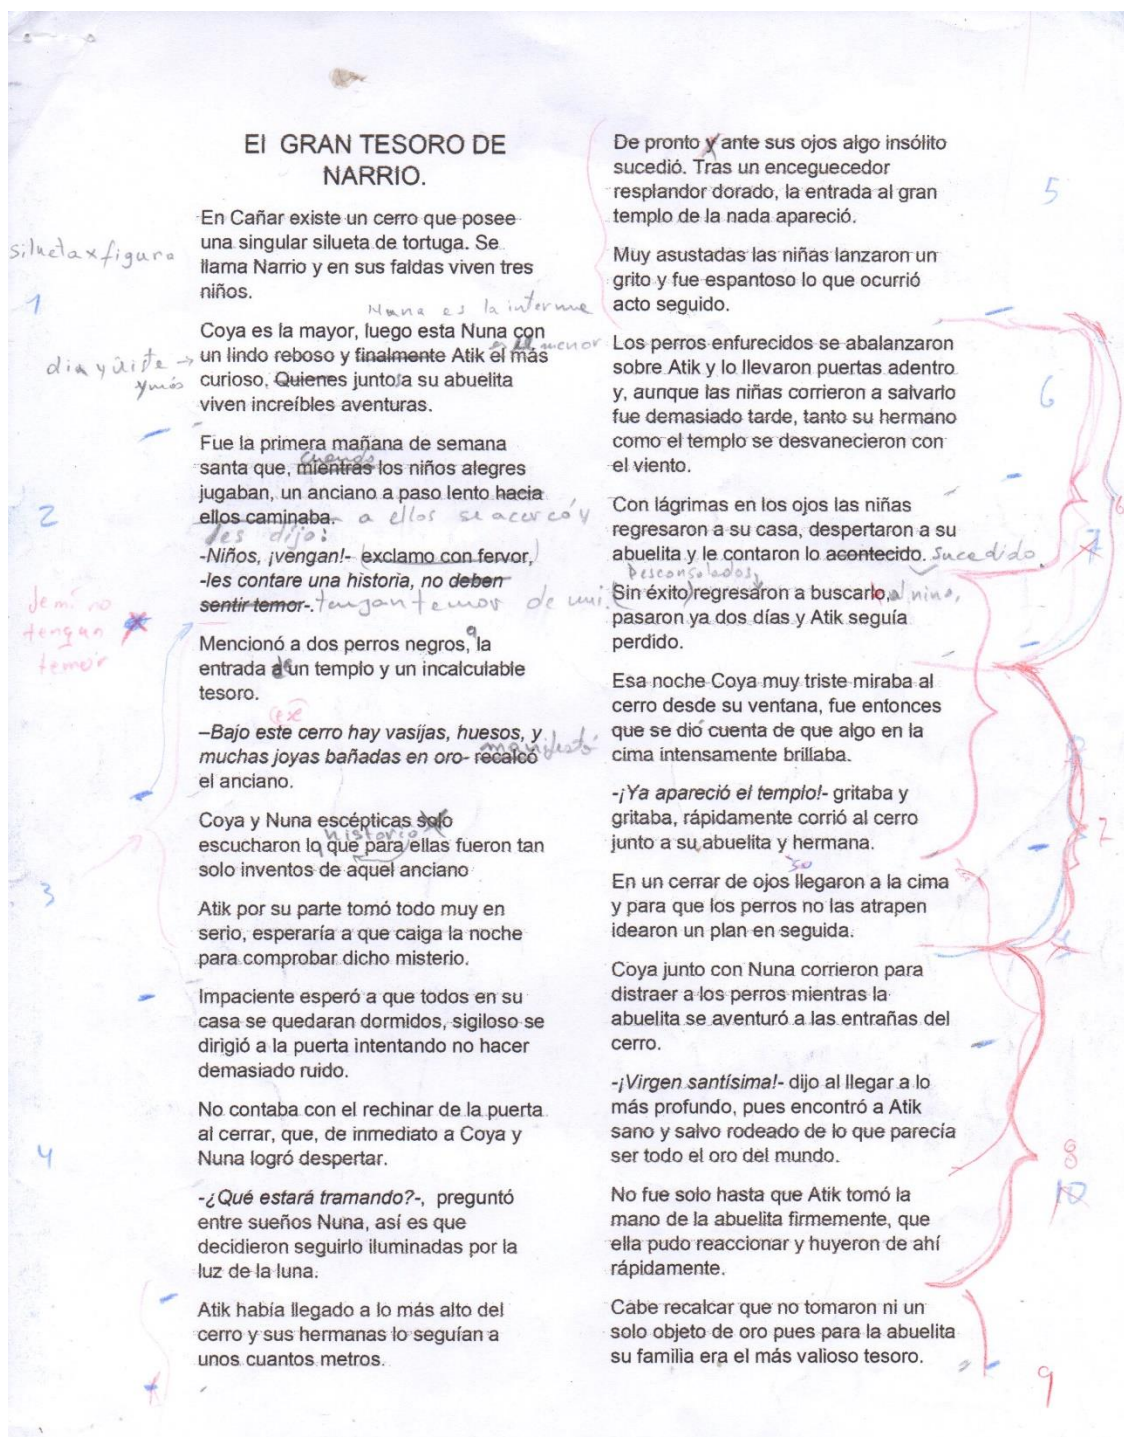 El GRAN TESORO DE
NARRIO.
En Cañar existe un cerro que posee
una singular silueta de tortuga. Se
llama Narrio y en sus faldas viven tres
niños.
silueta x figura
1
Nuna es la interme
Coya es la mayor, luego esta Nuna con
menor
un lindo reboso y finalmente Atik el más
curioso, Quienes junto a su abuelita
viven increíbles aventuras.
y más
Fue la primera mañana de semana
cuando
santa que, mientras los niños alegres
jugaban, un anciano a paso lento hacia
ellos caminaba. a ellos se acercó y
les dijo:
2
-Niños, ¡vengan!- exclamo con fervor,
-les contare una historia, no deben
sentir temor-. tengan temor de mi.
de mí no
tengan
temor
Mencionó a dos perros negros, a la
entrada de un templo y un incalculable
tesoro.
ese
–Bajo este cerro hay vasíjas, huesos, y
muchas joyas bañadas en oro- recalcó manifestó
el anciano.
Coya y Nuna escépticas solo
historia
escucharon lo que para ellas fueron tan
solo inventos de aquel anciano
3
Atik por su parte tomó todo muy en
serio, esperaría a que caiga la noche
para comprobar dicho misterio.
Impaciente esperó a que todos en su
casa se quedaran dormidos, sigiloso se
dirigió a la puerta intentando no hacer
demasiado ruido.
No contaba con el rechinar de la puerta
al cerrar, que, de inmediato a Coya y
Nuna logró despertar.
4
-¿Qué estará tramando?-, preguntó
entre sueños Nuna, así es que
decidieron seguirlo iluminadas por la
luz de la luna.
Atik había llegado a lo más alto del
cerro y sus hermanas lo seguían a
unos cuantos metros.
De pronto y ante sus ojos algo insólito
sucedió. Tras un enceguecedor
resplandor dorado, la entrada al gran
templo de la nada apareció.
5
Muy asustadas las niñas lanzaron un
grito y fue espantoso lo que ocurrió
acto seguido.
Los perros enfurecidos se abalanzaron
sobre Atik y lo llevaron puertas adentro
y, aunque las niñas corrieron a salvarlo
fue demasiado tarde, tanto su hermano
como el templo se desvanecieron con
el viento.
6
Con lágrimas en los ojos las niñas
regresaron a su casa, despertaron a su
abuelita y le contaron lo acontecido. sucedido
6
7
Desconsolados
Sin éxito regresaron a buscarlo, al niño,
pasaron ya dos días y Atik seguía
perdido.
Esa noche Coya muy triste miraba al
cerro desde su ventana, fue entonces
que se dió cuenta de que algo en la
cima intensamente brillaba.
-¡Ya apareció el templo!- gritaba y
gritaba, rápidamente corrió al cerro
junto a su abuelita y hermana.
7
En un cerrar de ojos llegaron a la cima
y para que los perros no las atrapen
idearon un plan en seguida.
Coya junto con Nuna corrieron para
distraer a los perros mientras la
abuelita se aventuró a las entrañas del
cerro.
-¡Virgen santísima!- dijo al llegar a lo
más profundo, pues encontró a Atik
sano y salvo rodeado de lo que parecía
ser todo el oro del mundo.
8
10
No fue solo hasta que Atik tomó la
mano de la abuelita firmemente, que
ella pudo reaccionar y huyeron de ahí
rápidamente.
Cabe recalcar que no tomaron ni un
solo objeto de oro pues para la abuelita
su familia era el más valioso tesoro.
9